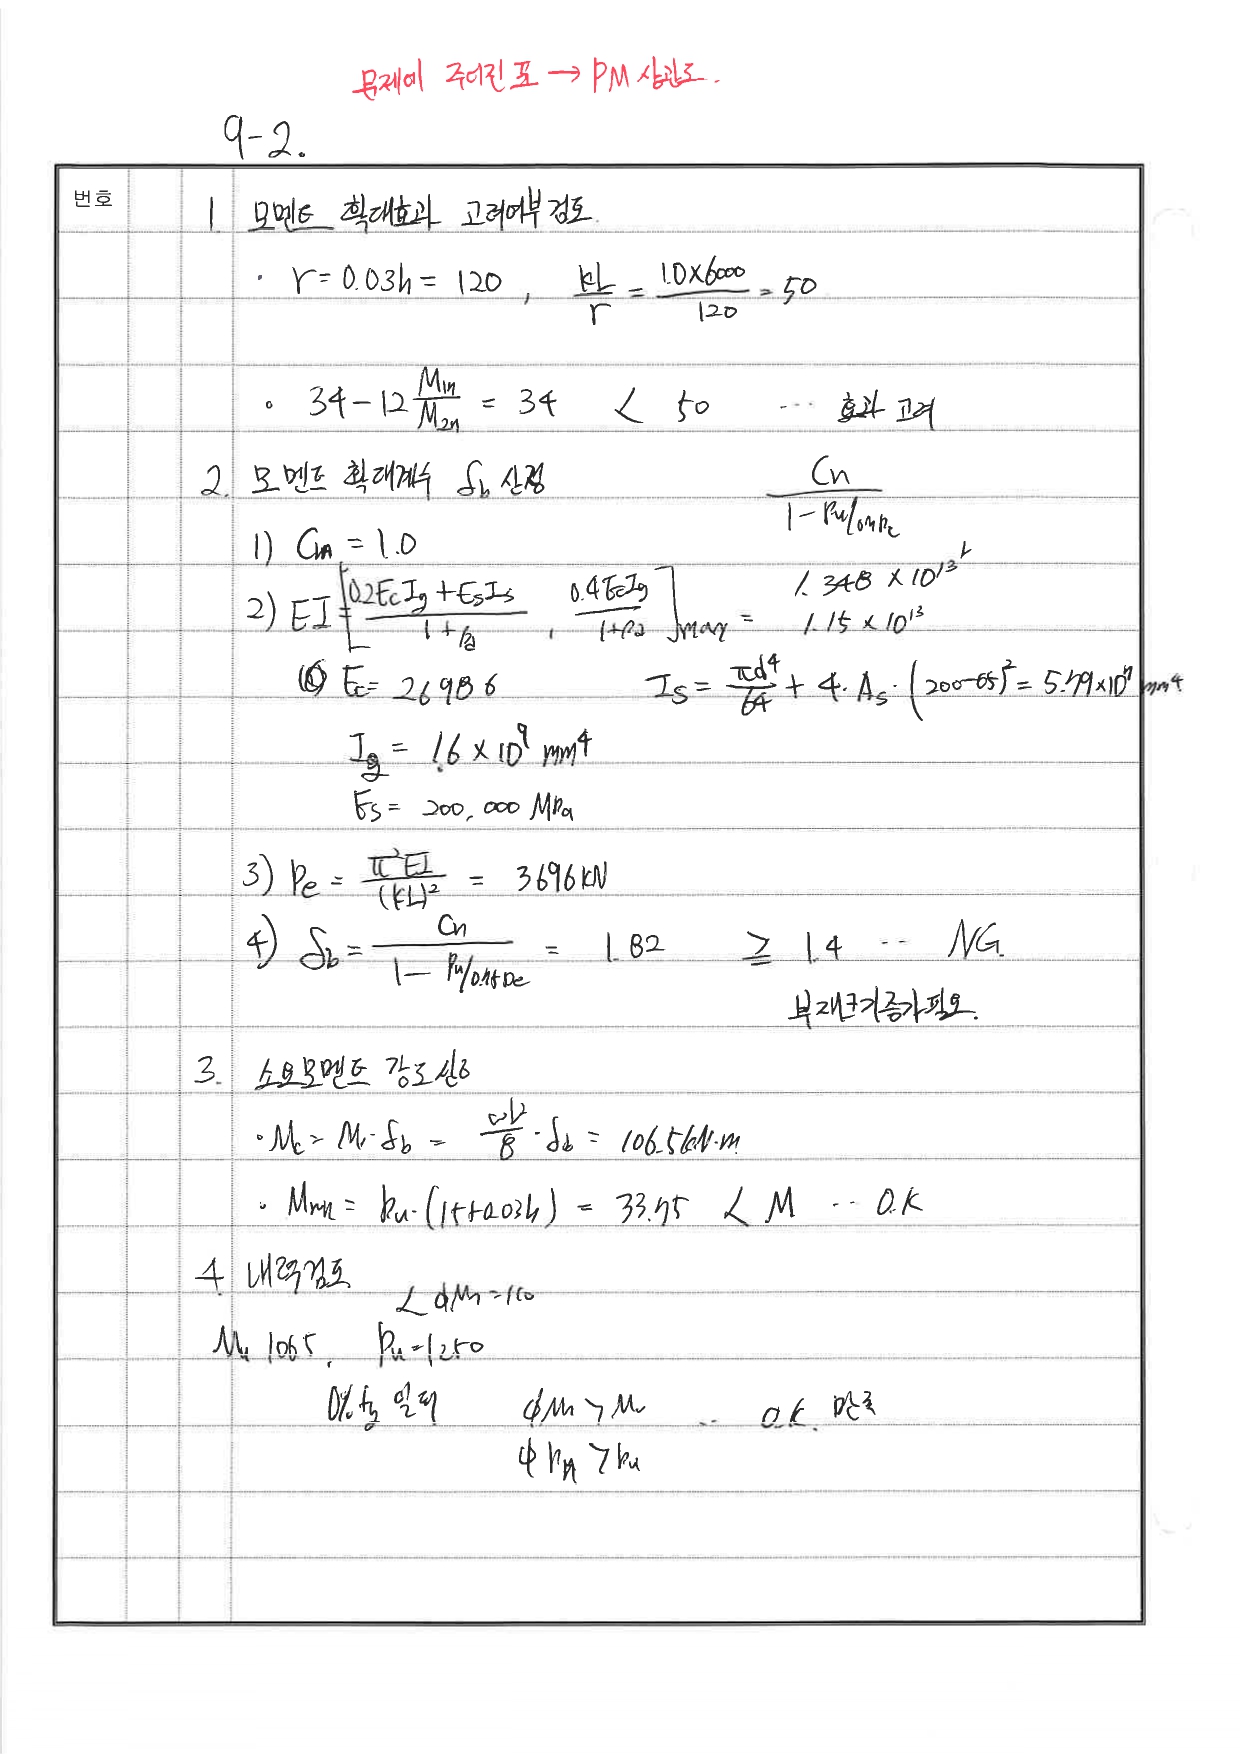 문제에 주어진 표 → PM 상관도.
9-2.
번호
1 모멘트 확대효과 고려여부 검토.
· r = 0.03h = 120 , kL/r = 1.0×6000/120 = 50
· 34-12 M1n/M2n = 34 < 50 ··· 효과 고려
2. 모멘트 확대계수 δb 산정
Cn / 1-Pu/0.75Pc
1) Cm = 1.0
2) EI = [0.2EcIg + EsIs / 1+βd , 0.4EcIg / 1+βd]max = 1.348 × 10¹³
1.15 × 10¹³
Ec = 26986 Is = πd⁴/64 + 4·As·(200-65)² = 5.79×10⁷ mm⁴
Ig = 1.6 × 10⁹ mm⁴
Es = 200,000 MPa
3) Pe = π²EI/(kL)² = 3696 kN
4) δb = Cn / 1-Pu/0.75Pe = 1.82 ≥ 1.4 ·· NG.
부재크기증가필요.
3. 소요모멘트 강도 산정
· Mc = M·δb = ωl²/8 · δb = 106.5 kN·m
· Mmin = Pu·(15+0.03h) = 33.75 < M ·· O.K
4 내력검토
< φMn = 110
Mu 106.5, Pu = 1250
일때 φMn > Mu ·· O.K. 만족
φPn > Pu